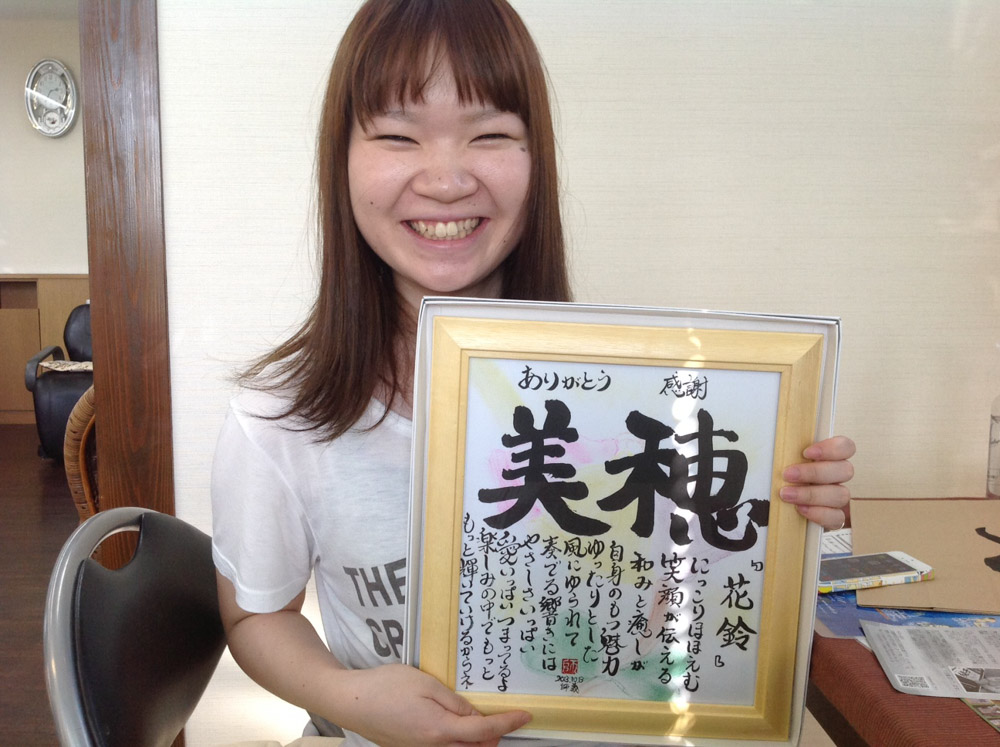 ありがとう 感謝
美穂
「花鈴」
にっこりほほえむ
笑顔が伝える
和みと癒しが
自身のもつ魅力
ゆったりとした
風にゆられて
奏でる響きには
やさしさいっぱい
愛いっぱいつまってるよ
楽しみの中でもっと
もっと輝いていけるからネ
THE
CR